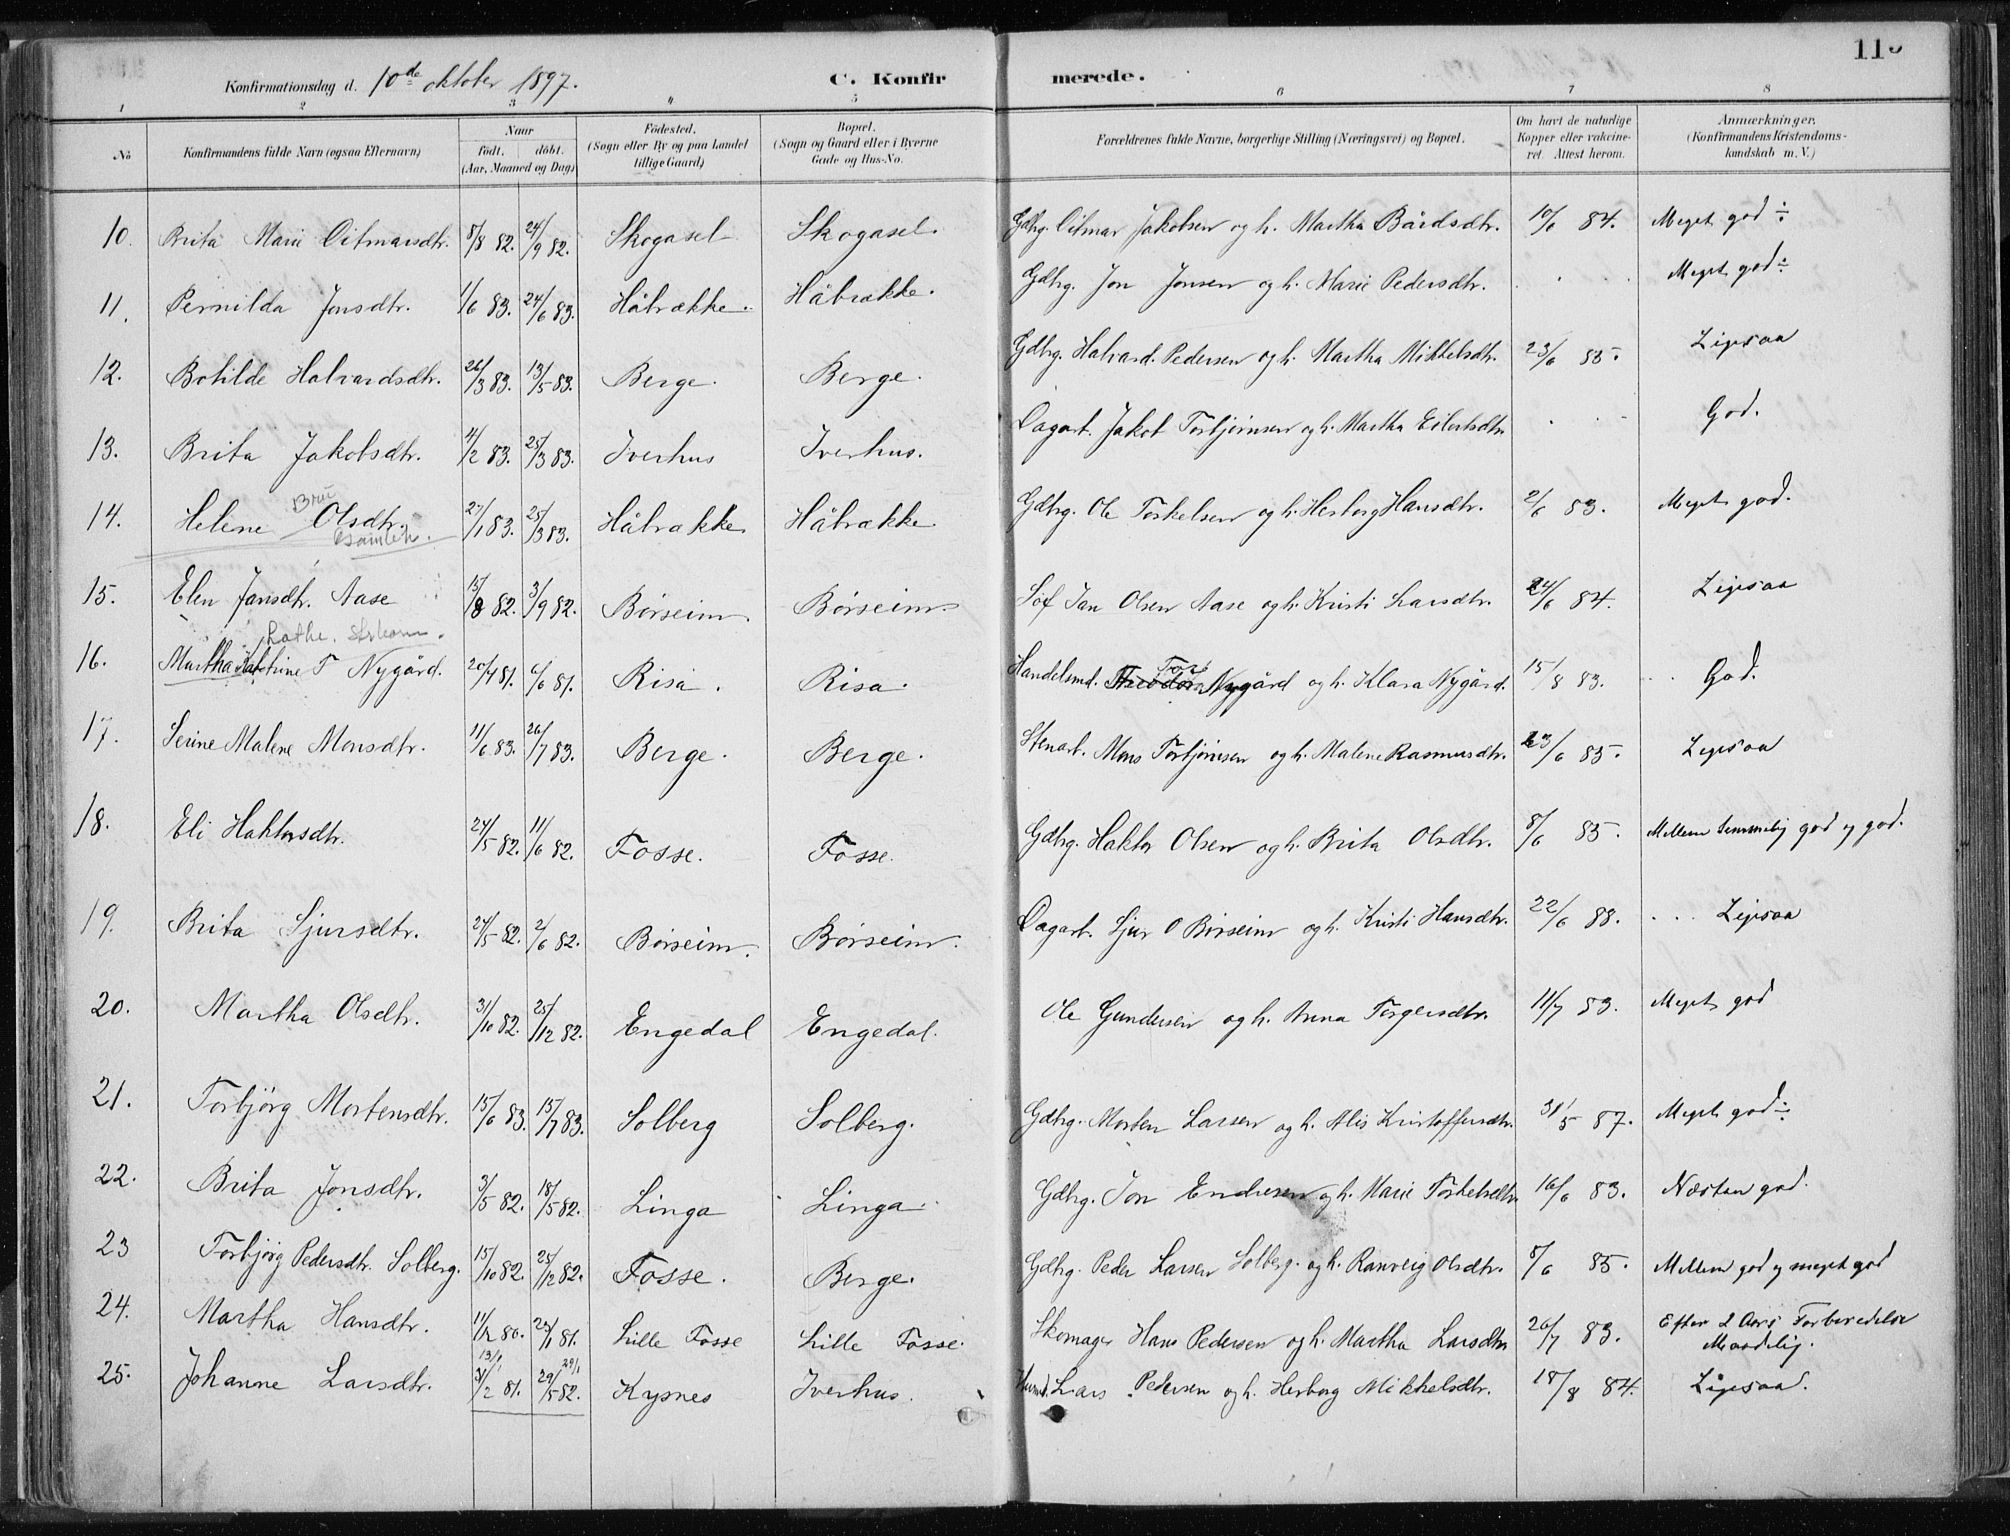 115
Konfirmationsdag d. 10de oktober 1897. C. Konfirmerede.
1 2 3 4 5 6 7 8
No
Konfirmandens fulde Navn (ogsaa Efternavn)
Naar født. døbt. (Aar, Maaned og Dag)
Fødested. (Sogn eller By og paa Landet tillige Gaard)
Bopæl. (Sogn og Gaard eller i Byerne Gade og Hus-No.
Forældrenes fulde Navne, borgerlige Stilling (Næringsvei) og Bopæl.
Om havt de naturlige Kopper eller vakcineret. Attest herom.
Anmærkninger. (Konfirmandens Kristendomskundskab m. V.)
10. Brita Marie Ditmarsdtr. 8/8 82. 24/9 82. Skogasel Skogasel. Gdbrg. Ditmar Jakobsen og h. Martha Bårdsdtr. 10/6 84. Meget god ÷
11. Pernilda Jonsdtr. 1/6 83. 24/6 83. Håbrække. Håbrække. Gdbrg. Jon Jonsen og h. Marie Pedersdtr. . . . Meget god ÷
12. Botilde Halvardsdtr. 26/3 83. 13/5 83. Berge. Berge. Gdbrg. Halvard Pedersen og h. Martha Mikkelsdtr. 23/6 85. Ligesaa
13. Brita Jakobsdtr. 4/2 83. 25/3 83. Iverhus Iverhus. Dagarb. Jakob Torbjørnsen og h. Martha Eilertsdtr . . . God.
14. Helene Olsdtr. 27/1 83. 25/3 83. Håbrække Håbrække Gdbrg. Ole Torkelsen og h. Herborg Hansdtr. 2/6 83. Meget god.
15. Elen Jansdtr. Aase 15/8 82. 3/9 82. Børseim Børseim Jan Olsen Aase og h. Kristi Larsdtr. 24/6 84. Ligesaa
16. Martha Kathrine T Nygård. 20/4 81. 6/6 81. Risa. Risa. Handelsmd. Tore Nygård og h. Klara Nygård. 15/8 83. . . God.
17. Serine Malene Monsdtr. 11/6 83. 26/7 83. Berge. Berge. Stenarb. Mons Torbjørnsen og h. Malene Rasmusdtr. 23/6 85. Ligesaa
18. Eli Haktorsdtr. 24/5 82. 11/6 82. Fosse. Fosse. Gdbrg. Haktor Olsen og h. Brita Olsdtr. 8/6 85. Mellem temmelig god og god.
19. Brita Sjursdtr. 24/5 82. 2/6 82. Børseim. Børseim. Dagarb. Sjur O Børseim og h. Kristi Hansdtr. 22/6 88. . . . Ligesaa
20. Martha Olsdtr. 31/10 82. 25/12 82. Engedal Engedal. Ole Gundersen og h. Anna Torgersdtr. 11/7 83. Meget god
21. Torbjørg Mortensdtr. 15/6 83. 15/7 83. Solberg Solberg. Gdbrg. Morten Larsen og h. Alis Kristoffersdtr. 31/5 87. Meget god ÷
22. Brita Jonsdtr. 3/5 82. 18/5 82. Linga Linga Gdbrg. Jon Endresen og h. Marie Torkelsdtr 16/6 83. Næsten god.
23 Torbjørg Pedersdtr. Solberg. 15/10 82. 25/12 82. Fosse. Berge. Gdbrg. Peder Larsen Solberg. og h. Ranveig Olsdtr. 8/6 85. Mellem god og meget god
24. Martha Hansdtr. 11/12 80. 23/1 81. Lille Fosse Lille Fosse. Skomager Hans Pedersen og h. Martha Larsdtr 26/7 83. Efter 2 Aars Forberedelse Maadelig.
25. Johanne Larsdtr. 31/2 81. 29/5 82. Kysnes Iverhus. Lars Pedersen og h. Herborg Mikkelsdtr. 18/8 84. Ligesaa.